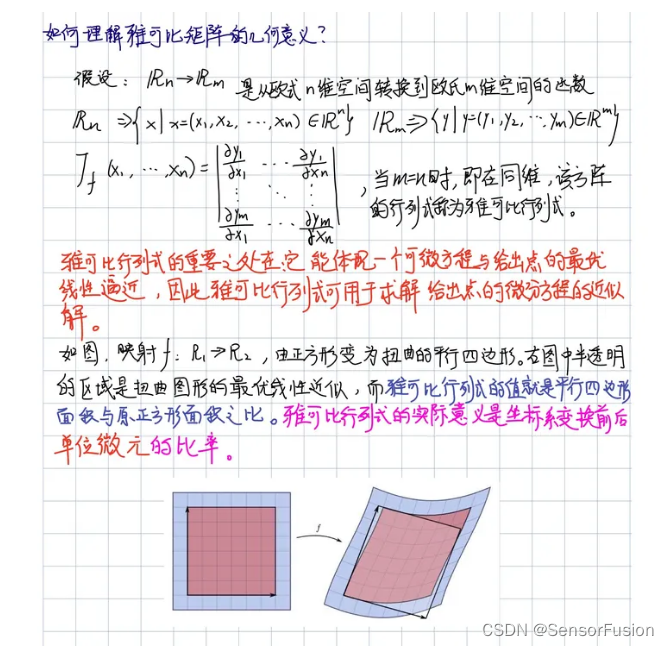 如何理解雅可比矩阵的几何意义?
假设: ℝn→ℝm 是从欧式n维空间转换到欧氏m维空间的函数
ℝn ⇒{x|x=(x₁,x₂,⋯,xn)∈ℝⁿ} ℝm⇒{y|y=(y₁,y₂,⋯,ym)∈ℝᵐ}
J_f (x₁,⋯,xn)= | ∂y₁/∂x₁ ⋯ ∂y₁/∂xn |
| ⋮ ⋱ ⋮ |
| ∂ym/∂x₁ ⋯ ∂ym/∂xn |
,当m=n时,即在同维,该方阵
的行列式称为雅可比行列式。
雅可比行列式的重要之处在它能体现一个可微方程与给出点的最优
线性逼近,因此雅可比行列式可用于求解给出点的微分方程的近似
解。
如图,映射f: R₁→R₂,由正方形变为扭曲的平行四边形。右图中半透明
的区域是扭曲图形的最优线性近似,而雅可比行列式的值就是平行四边形
面积与原正方形面积之比。雅可比行列式的实际意义是坐标系变换前后
单位微元的比率。
f
CSDN @SensorFusion